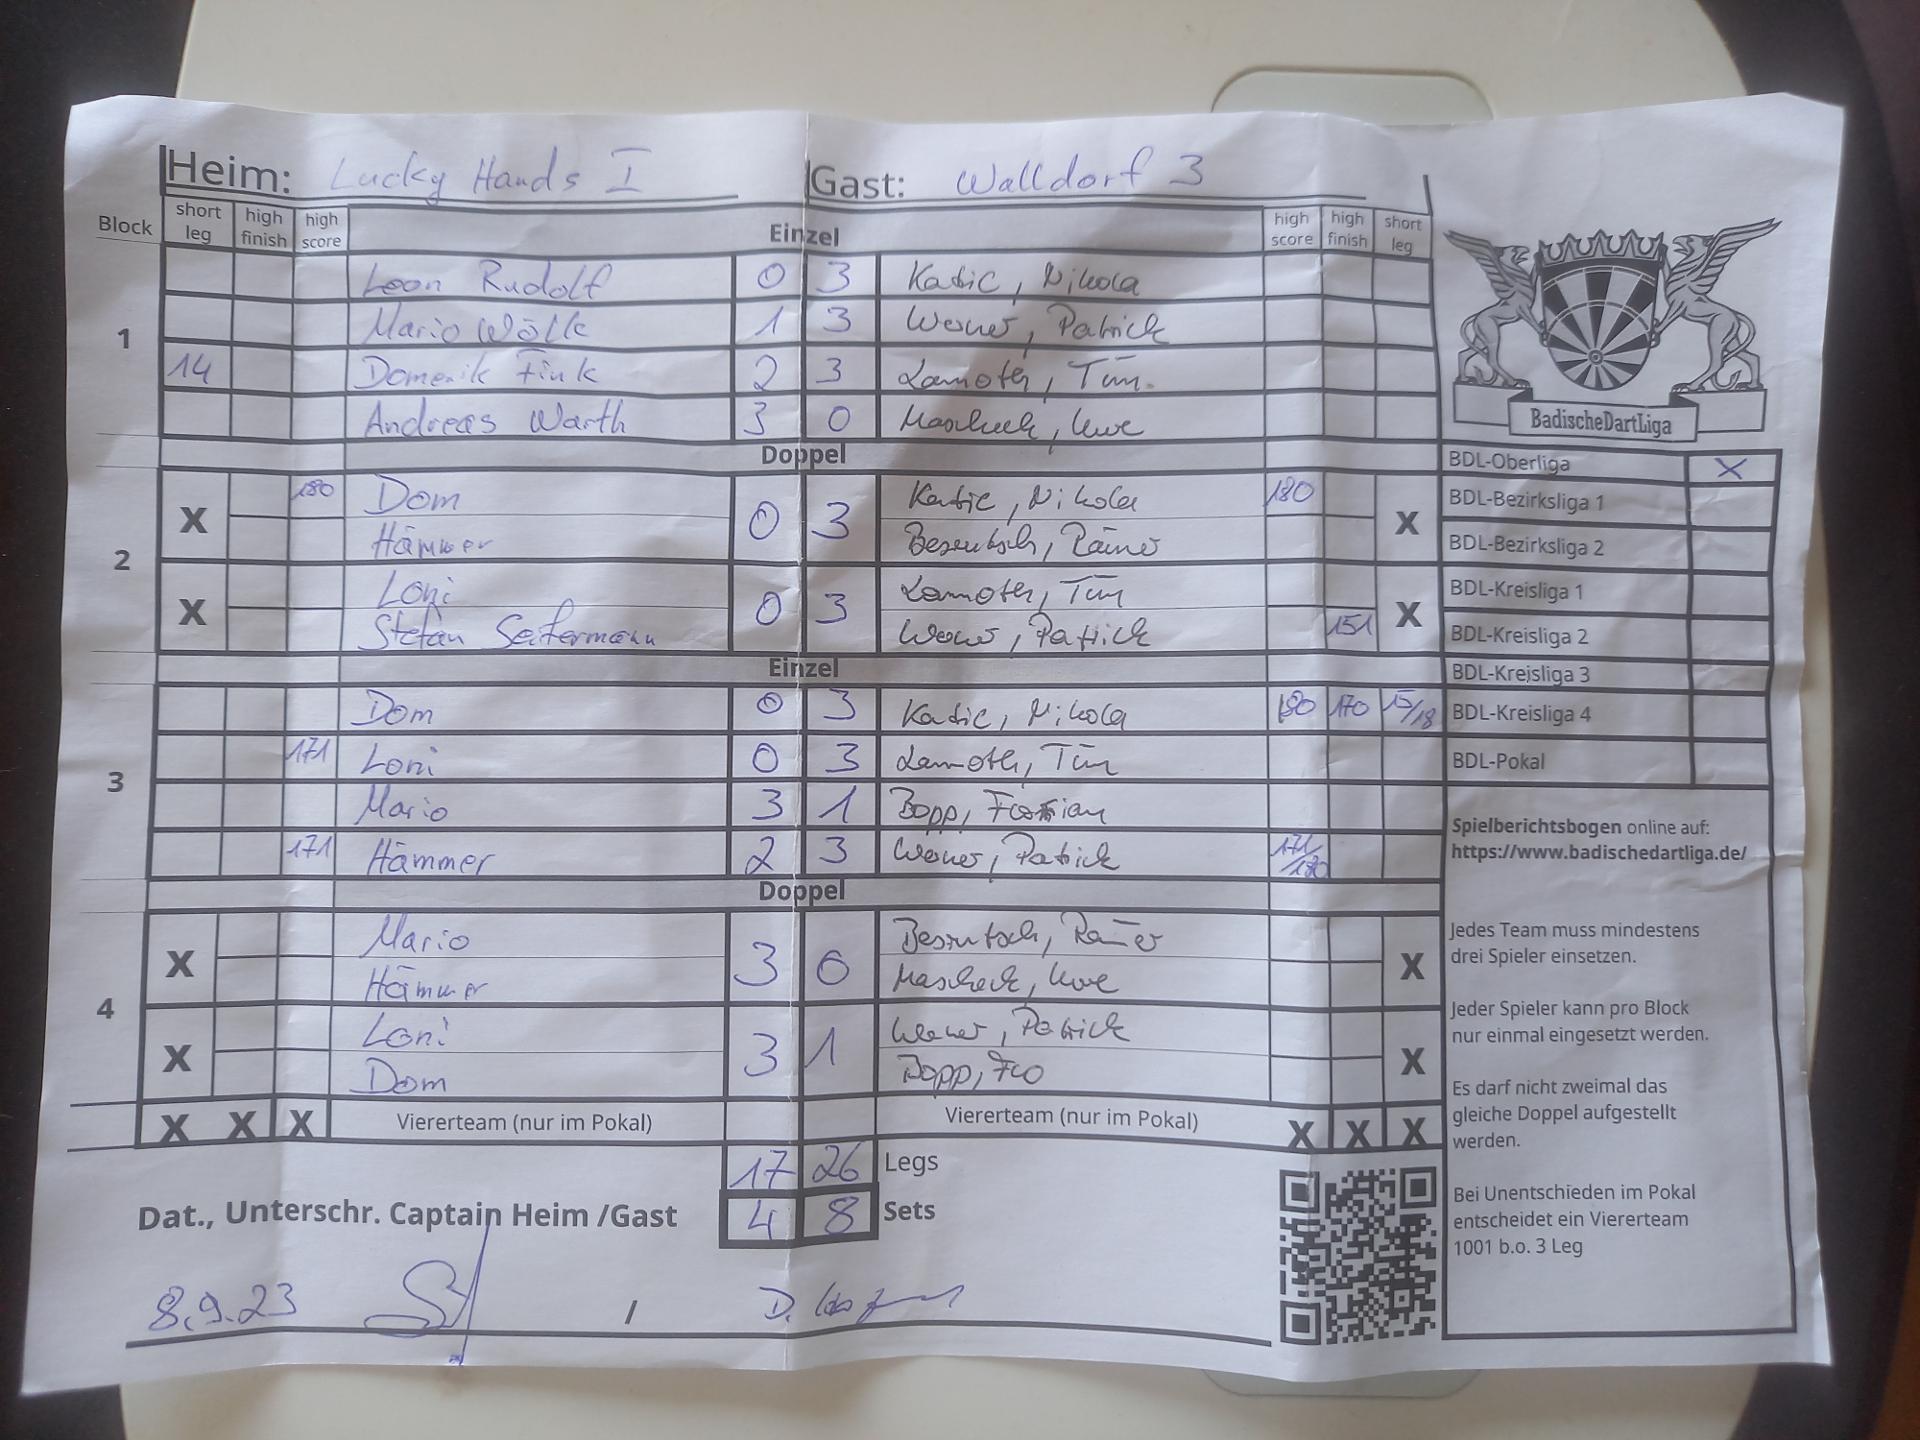 Heim: Lucky Hands I Gast: Walldorf 3
Block short leg high finish high score Einzel high score high finish short leg
1
Leon Rudolf 0 3 Katic, Nikola
Mario Wölk 1 3 Werner, Patrick
14 Domenik Fink 2 3 Lamoth, Tim
Andreas Warth 3 0 Mascheck, Uwe
Doppel
2
X 180 Dom 0 3 Katic, Nikola 180 X
Hämmer Rainer
X Loni 0 3 Lamoth, Tim X
Stefan Seifermann Werner, Patrick 151
Einzel
3
Dom 0 3 Katic, Nikola 180 170 15/18
171 Loni 0 3 Lamoth, Tim
Mario 3 1 Bopp, Florian
171 Hämmer 2 3 Werner, Patrick 171/180
Doppel
4
X Mario 3 0 Rainer X
Hämmer Mascheck, Uwe
X Loni 3 1 Werner, Patrick X
Dom Bopp, Flo
X X X Viererteam (nur im Pokal) Viererteam (nur im Pokal) X X X
17 26 Legs
Dat., Unterschr. Captain Heim /Gast 4 8 Sets
8.9.23 / D.
BadischeDartLiga
BDL-Oberliga X
BDL-Bezirksliga 1
BDL-Bezirksliga 2
BDL-Kreisliga 1
BDL-Kreisliga 2
BDL-Kreisliga 3
BDL-Kreisliga 4
BDL-Pokal
Spielberichtsbogen online auf:
https://www.badischedartliga.de/
Jedes Team muss mindestens
drei Spieler einsetzen.
Jeder Spieler kann pro Block
nur einmal eingesetzt werden.
Es darf nicht zweimal das
gleiche Doppel aufgestellt
werden.
Bei Unentschieden im Pokal
entscheidet ein Viererteam
1001 b.o. 3 Leg